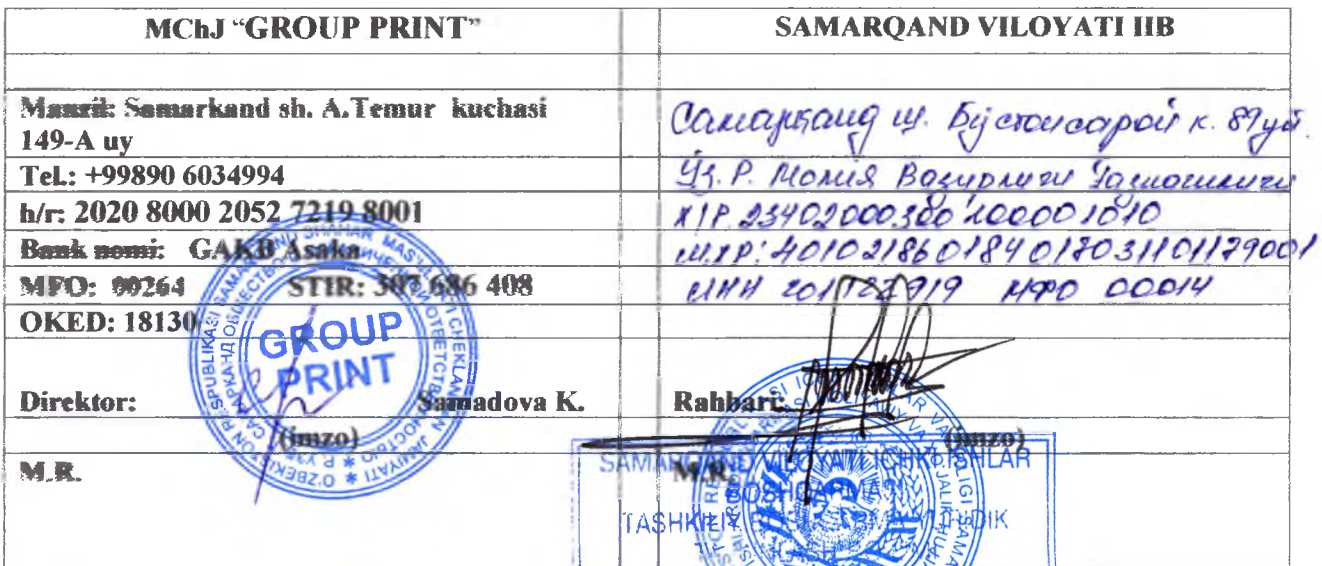 MChJ “GROUP PRINT”
SAMARQAND VILOYATI IIB
Manzil: Samarkand sh. A.Temur kuchasi
149-A uy
Самарқанд ш. Бўстонсарой к. 89 уй.
Tel.: +99890 6034994
Ўз. Р. Молия Вазирлиги Ғазначилиги
h/r: 2020 8000 2052 7219 8001
х/р. 23402000300100001010
Bank nomi: GAKB Asaka
ш.х р: 401021860184017031101179001
MFO: 00264 STIR: 307 686 408
ИНН 201 919 МФО 00014
OKED: 18130
GROUP
PRINT
Direktor: Samadova K.
Rahbari:
(imzo)
(imzo)
M.R.
M.R.
SAMARQAND VILOYATI ICHKI ISHLAR
BOSHQARMASI
TASHKILIY